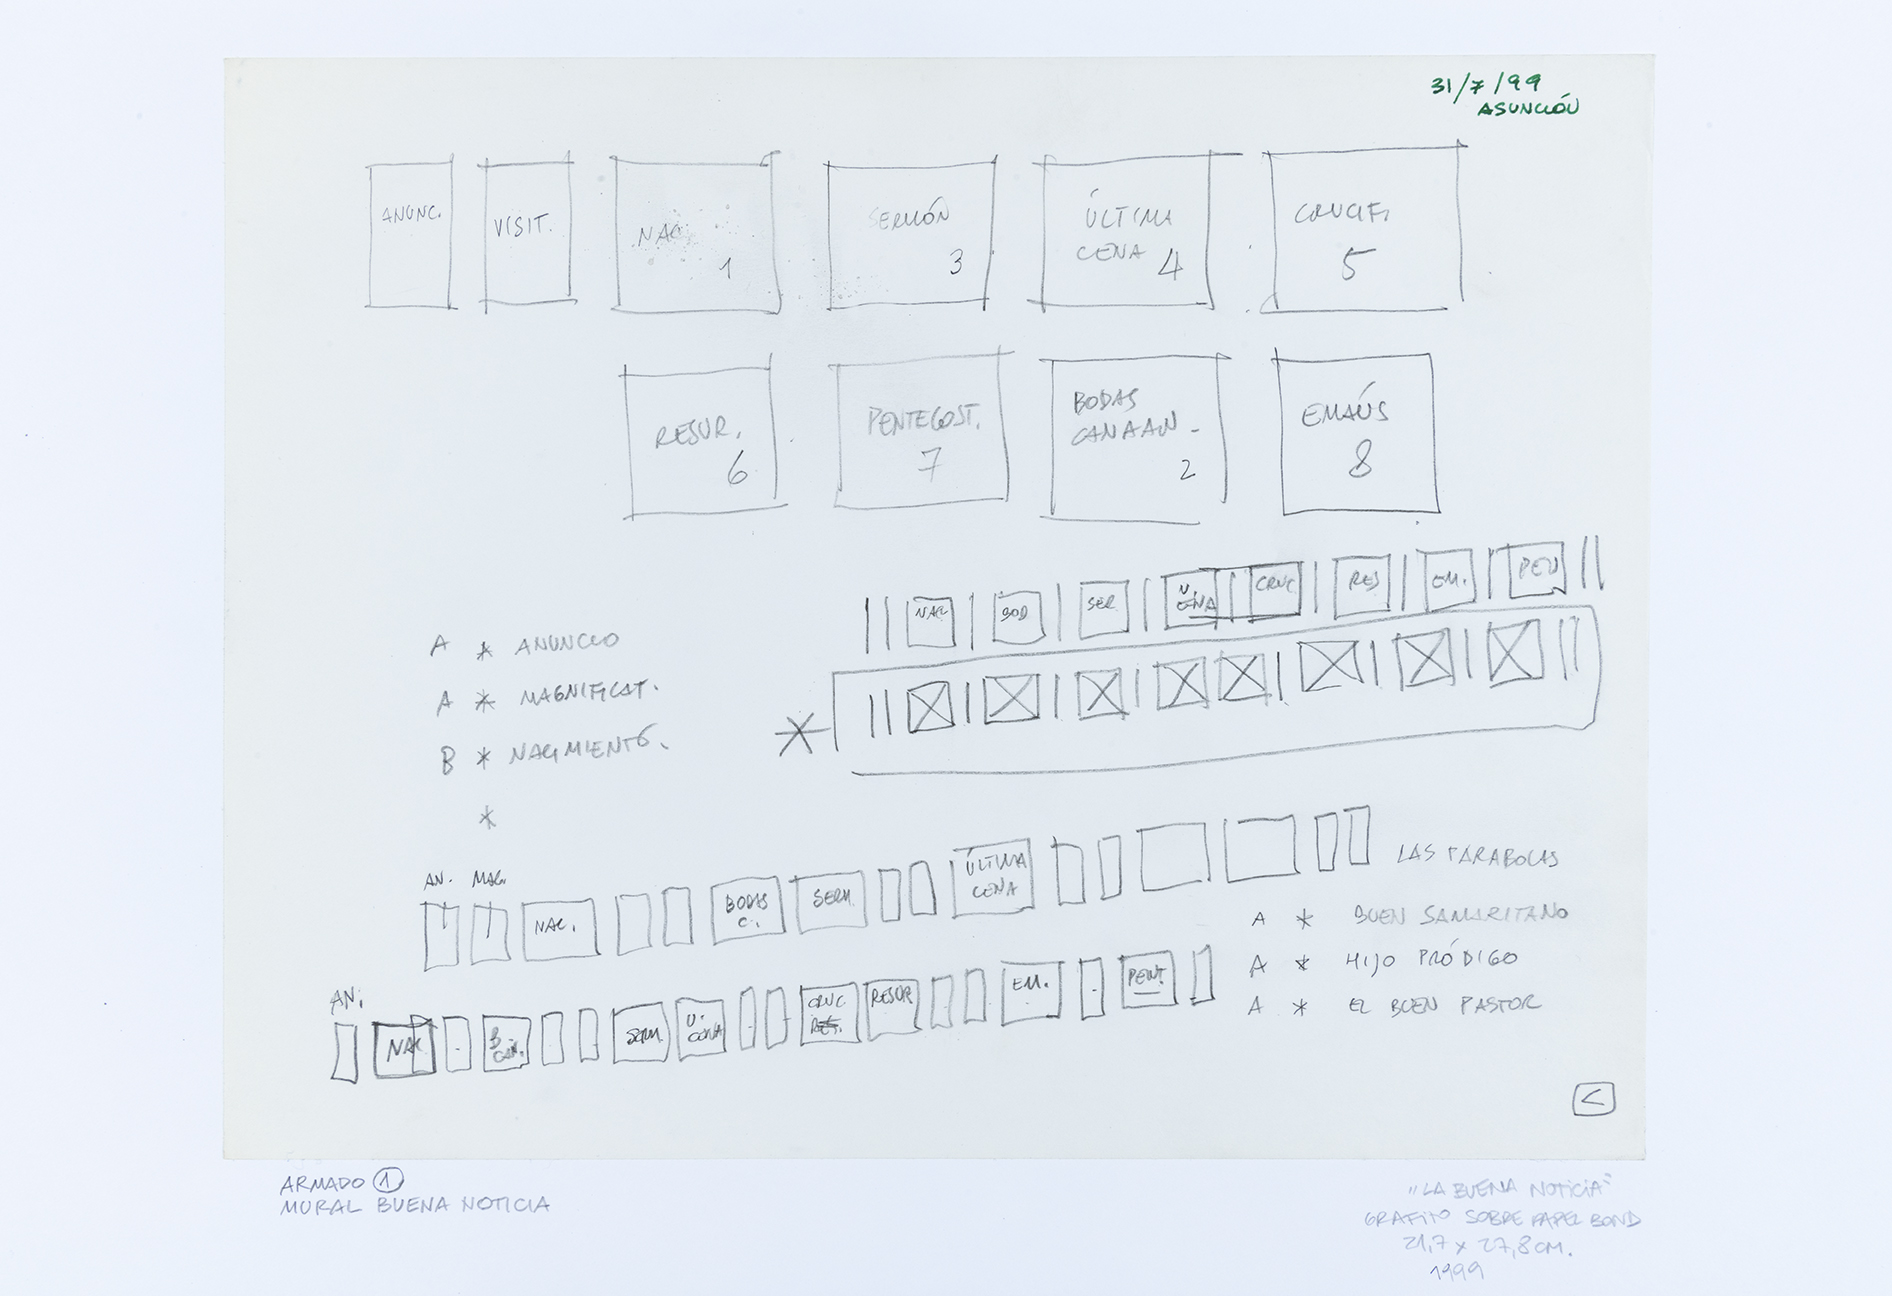 31/7/99
ASUNCIÓN
ANUNC.
VISIT.
NAC.
1
SERMÓN
3
ÚLTIMA
CENA 4
CRUCIF.
5
RESUR.
6
PENTECOST.
7
BODAS
CANAAN -
2
EMAÚS
8
NAC
BOD
SER
U.
CENA
CRUC
RES
EM.
PEN
A * ANUNCIO
A * MAGNIFICAT.
B * NACIMIENTO.
*
*
AN. MAG.
NAC.
BODAS
C.
SERM.
ÚLTIMA
CENA
LAS PARABOLAS
A * BUEN SAMARITANO
A * HIJO PRÓDIGO
A * EL BUEN PASTOR
AN.
NAC
B.
CAN.
SERM.
U.
CENA
CRUC
RES.
RESUR
EM.
PENT.
<
ARMADO 1
MURAL BUENA NOTICIA
"LA BUENA NOTICIA"
GRAFITO SOBRE PAPEL BOND
21,7 x 27,8 CM.
1999